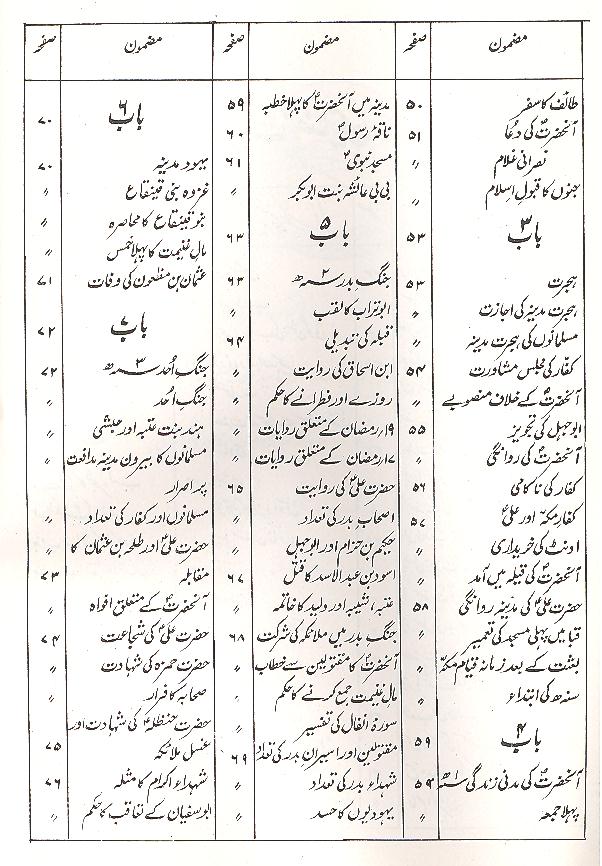 مضمون صفحہ
طائف کا سفر ۵۰
آنحضرتؐ کی دُعا ۵۱
نصرانی غلام 〃
جنوں کا قبولِ اسلام 〃
باب ۳ ۵۳
ہجرت ۵۳
ہجرت مدینہ کی اجازت 〃
مسلمانوں کی ہجرت مدینہ 〃
کفّار کی مجلس مشاورت ۵۴
آنحضرتؐ کے خلاف منصوبے 〃
ابوجہل کی تجویز ۵۵
آنحضرتؐ کی روانگی 〃
کفار کی ناکامی ۵۶
کفارِ مکہ اور علیؑ ۵۷
اونٹ کی خریداری 〃
آنحضرتؐ کی قبلہ میں آمد 〃
حضرت علیؑ کی مدینہ روانگی ۵۸
قبا میں پہلی مسجد کی تعمیر 〃
بعثت کے بعد زمانہ قیام مکہ 〃
سنہ ھ کی ابتداء 〃
باب ۴ ۵۹
آنحضرتؐ کی مدنی زندگی سنہ ۱ ھ ۵۹
پہلا جمعہ 〃
مضمون صفحہ
مدینہ میں آنحضرتؐ کا پہلا خطبہ ۵۹
ناقۂ رسولؐ ۶۰
مسجد نبویؐ ۶۱
بی بی عائشہ بنت ابوبکر 〃
باب ۵ ۶۳
جنگِ بدر سنہ ۲ ھ ۶۳
ابوتراب کا لقب 〃
قبلہ کی تبدیلی ۶۴
ابن اسحاق کی روایت 〃
روزے اور فطرانے کا حکم 〃
۱۹؍ رمضان کے متعلق روایات 〃
۱۷؍ رمضان کے متعلق روایات 〃
حضرت علیؑ کی روایت ۶۵
اصحابِ بدر کی تعداد 〃
حکیم بن حزام اور ابوجہل 〃
اسود بن عبدالاسد کا قتل ۶۷
عتبہ، شیبہ اور ولید کا خاتمہ 〃
جنگ بدر میں ملائکہ کی شرکت ۶۸
آنحضرتؐ کا مقتولین سے خطاب 〃
مال غنیمت جمع کرنے کا حکم 〃
سورۂ انفال کی تفسیر 〃
مقتولین اور اسیرانِ بدر کی تعداد ۶۹
شہداء بدر کی تعداد 〃
یہودیوں کا حسد 〃
مضمون صفحہ
باب ۶ ۷۰
یہود مدینہ ۷۰
غزوہ بنی قینقاع 〃
بنو قینقاع کا محاصرہ 〃
مال غنیمت کا پہلا خمس 〃
عثمان بن مظعون کی وفات ۷۱
باب ۷ ۷۲
جنگِ اُحد سنہ ۳ ھ ۷۲
جنگِ اُحد 〃
ہند بنت عتبہ اور حبشی 〃
مسلمانوں کا بیرون مدینہ مدافعت 〃
پر اصرار
مسلمانوں اور کفار کی تعداد 〃
حضرت علیؑ اور طلحہ بن عثمان کا
مقابلہ ۷۳
آنحضرتؐ کے متعلق افواہ 〃
حضرت علیؑ کی شجاعت ۷۴
حضرت حمزہ کی شہادت 〃
صحابہ کا فرار 〃
حضرت حنظلہؑ کی شہادت اور
غسل ملائکہ ۷۵
شہداء اکرام کا مثلہ ۷۶
ابوسفیان کے تعاقب کا حکم 〃